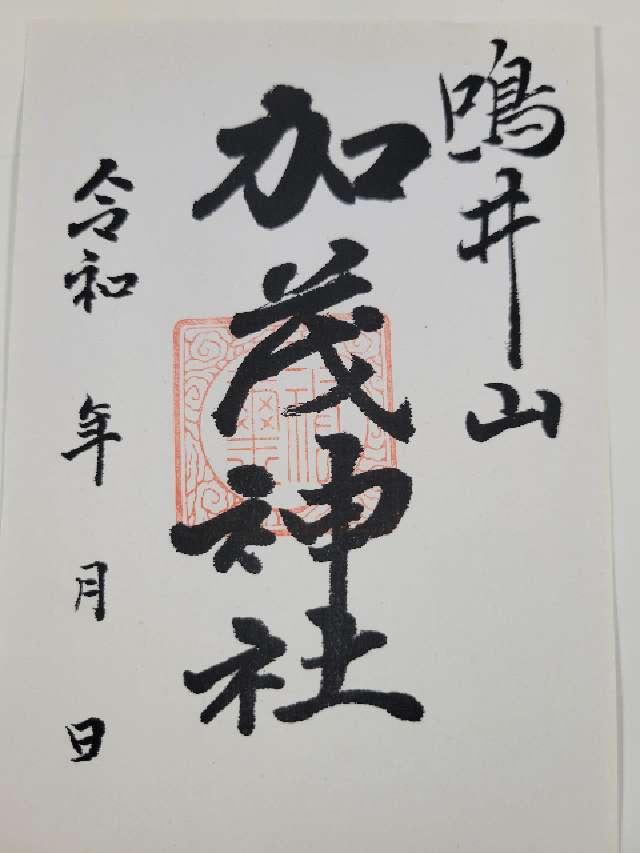 鳴井山
加茂神社
令和 年 月 日